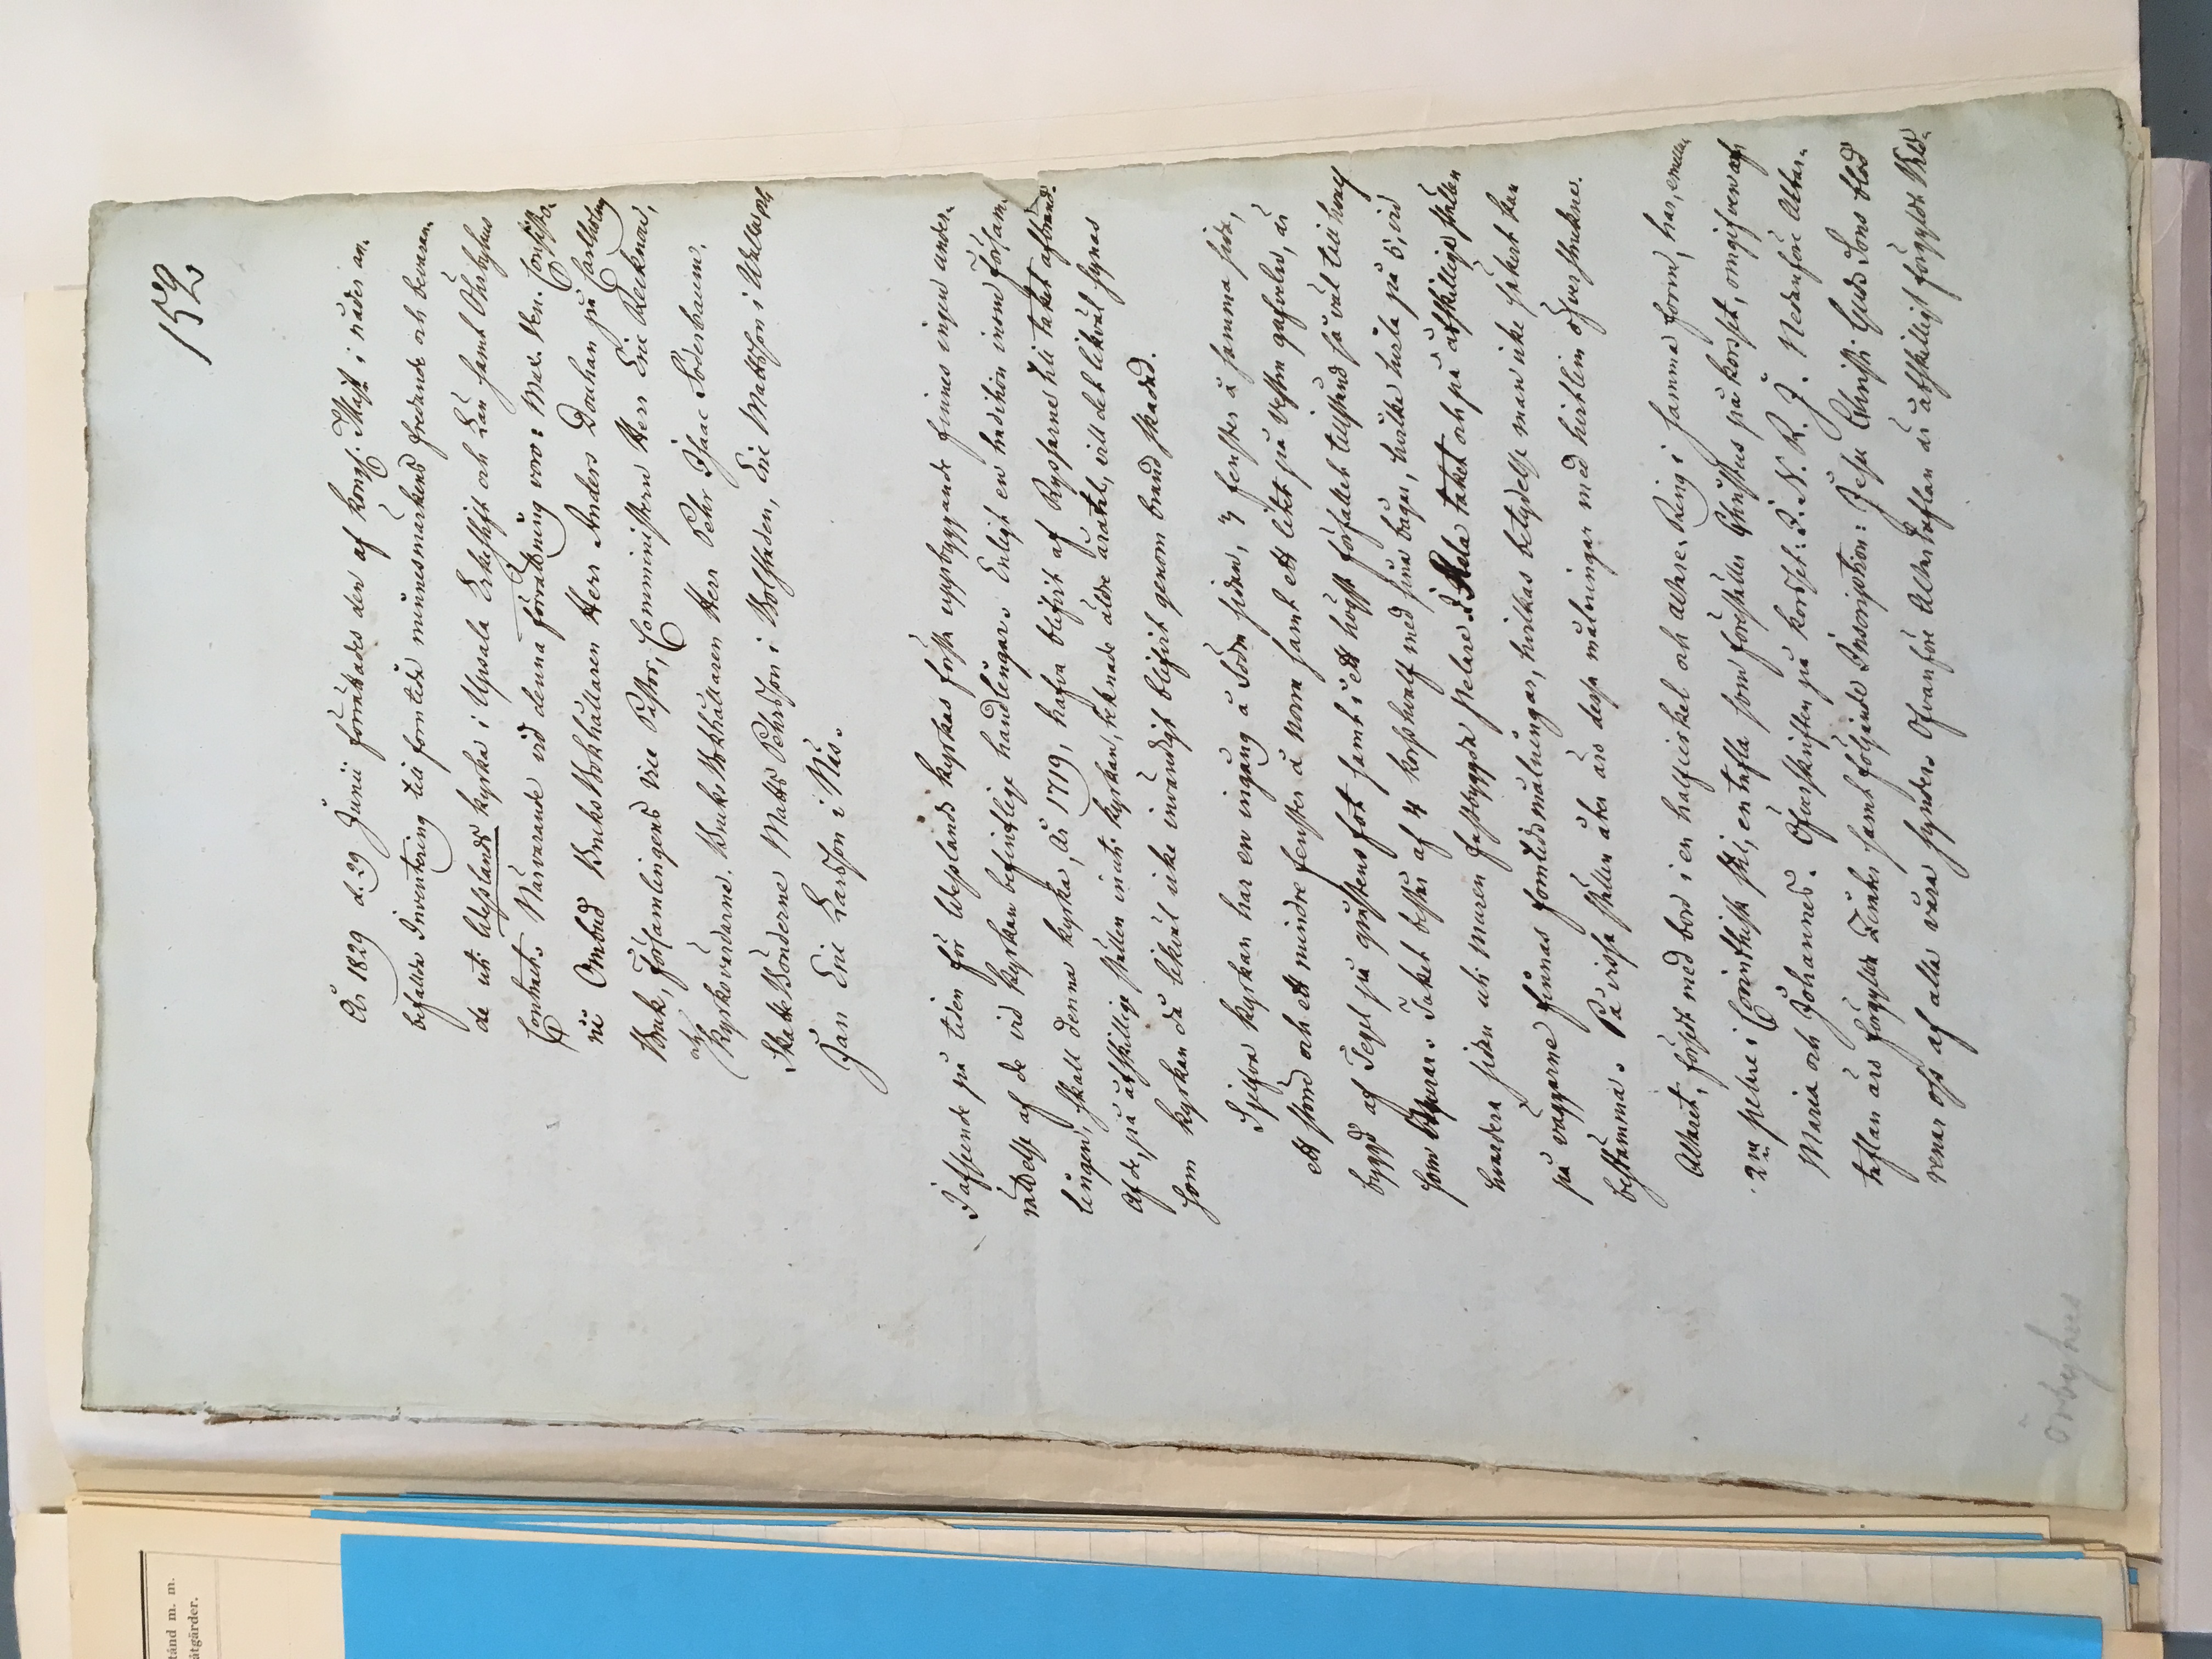 152
År 1829 d. 29 Junii förrättades den af Kongl. Maijt i nåder an-
befallda Inventering till forntids minnesmärkens fredande och bevaran-
de uti Weslands kyrka i Upsala Erkestift och Län samt Örbyhus
Contract. Närvarande vid denna förrättning voro: Max. Ven. Consisto-
rii Ombud Bruks Bokhållaren Herr Anders Douhan på Carlholms
Bruk, Församlingens Vice Pastor, Comministern Herr Eric
och Kyrkovärdarne, Bruks Bokhållaren Herr Pehr Isaac Söderbaum,
Skatte Bönderne Matts Pehrsson i Bolstaden, Eric Mattsson i
Jan Eric Larsson i Näs.
I afseende på tiden för Weslands kyrkas första uppbyggande finnes ingen under-
rättelse af de vid kyrkan befintlige handlingar. Enligt en tradition inom Församl-
lingen, skall denna kyrka, År 1719, hafva blifvit af Ryssarne till taket afbränd.
Af de, på åtskillige ställen inuti kyrkan, tecknade äldre åratal, vill det likväl synas
som kyrkan då likväl icke invändigt blifvit genom brand skadad.
Sjelfva kyrkan har en ingång å Södra sidan, 4 fenster å samma sida,
ett större och ett mindre fenster å Norra samt ett likt på Vestra gafveln, är
byggd af Tegel på gråstens fot samt i ett högst förfallet tillstånd så väl till hvalf
som murar. Taket består af 4 korshvalf med sina bågar, hvilka hvila på 5, vid
hvardera sidan uti muren fastbyggda pelare. I Hela taket och på åtskilliga ställen
på väggarne finnas forntidsmålningar, hvilkas betydelse man icke säkert kan
bestämma. På vissa ställen åter äro dessa målningar med hvitlim öfverstrukne.
Altaret, försedt med bord i en halfcirkel och altare-Ring i samma form, har, emellan
2ne pelare i Corinthisk stil, en tafla som föreställer Christus på korset, omgifven af
Maria och Johannes. Öfverskriften på korset: I. N. R. I. Nedanföre Altar-
taflan äro förgyllda Zirater samt följande Inscription: Jesu Christi Guds Sons blod
renar oss af alla våra synder. Ofvanföre Altartaflan är åtskilligt förgyldt
Örbyhus
tånd m. m.
åtgärder.